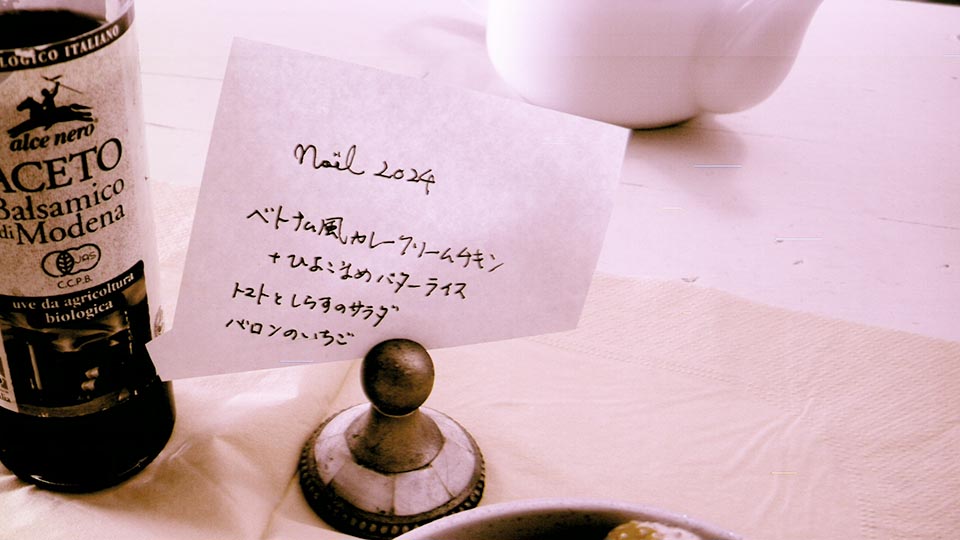 LOGICO ITALIANO
alce nero
ACETO
Balsamico
di Modena
JAS
C.C.P.B.
uve da agricoltura
biologica
Noël 2024
ベトナム風カレークリームチキン
+ひよこまめバターライス
トマトとしらすのサラダ
バロンのいちご